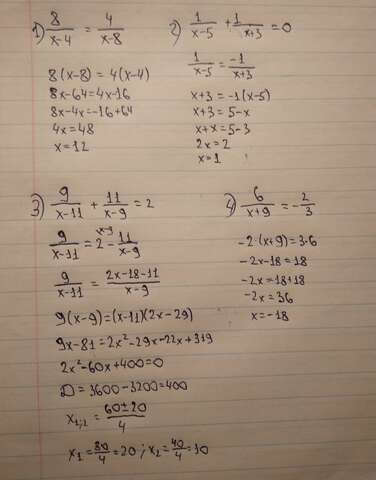 1) 8/(x-4) = 4/(x-8)
8(x-8) = 4(x-4)
8x-64=4x-16
8x-4x=-16+64
4x=48
x=12
2) 1/(x-5) + 1/(x+3) = 0
1/(x-5) = -1/(x+3)
x+3 = -1(x-5)
x+3 = 5-x
x+x=5-3
2x=2
x=1
3) 9/(x-11) + 11/(x-9) = 2
9/(x-11) = 2 x-9 - 11/(x-9)
9/(x-11) = (2x-18-11)/(x-9)
9(x-9)=(x-11)(2x-29)
9x-81=2x²-29x-22x+319
2x²-60x+400=0
D=3600-3200=400
x1;2 = (60±20)/4
x1=80/4=20; x2=40/4=10
4) 6/(x+9) = -2/3
-2·(x+9)=3·6
-2x-18=18
-2x=18+18
-2x=36
x=-18